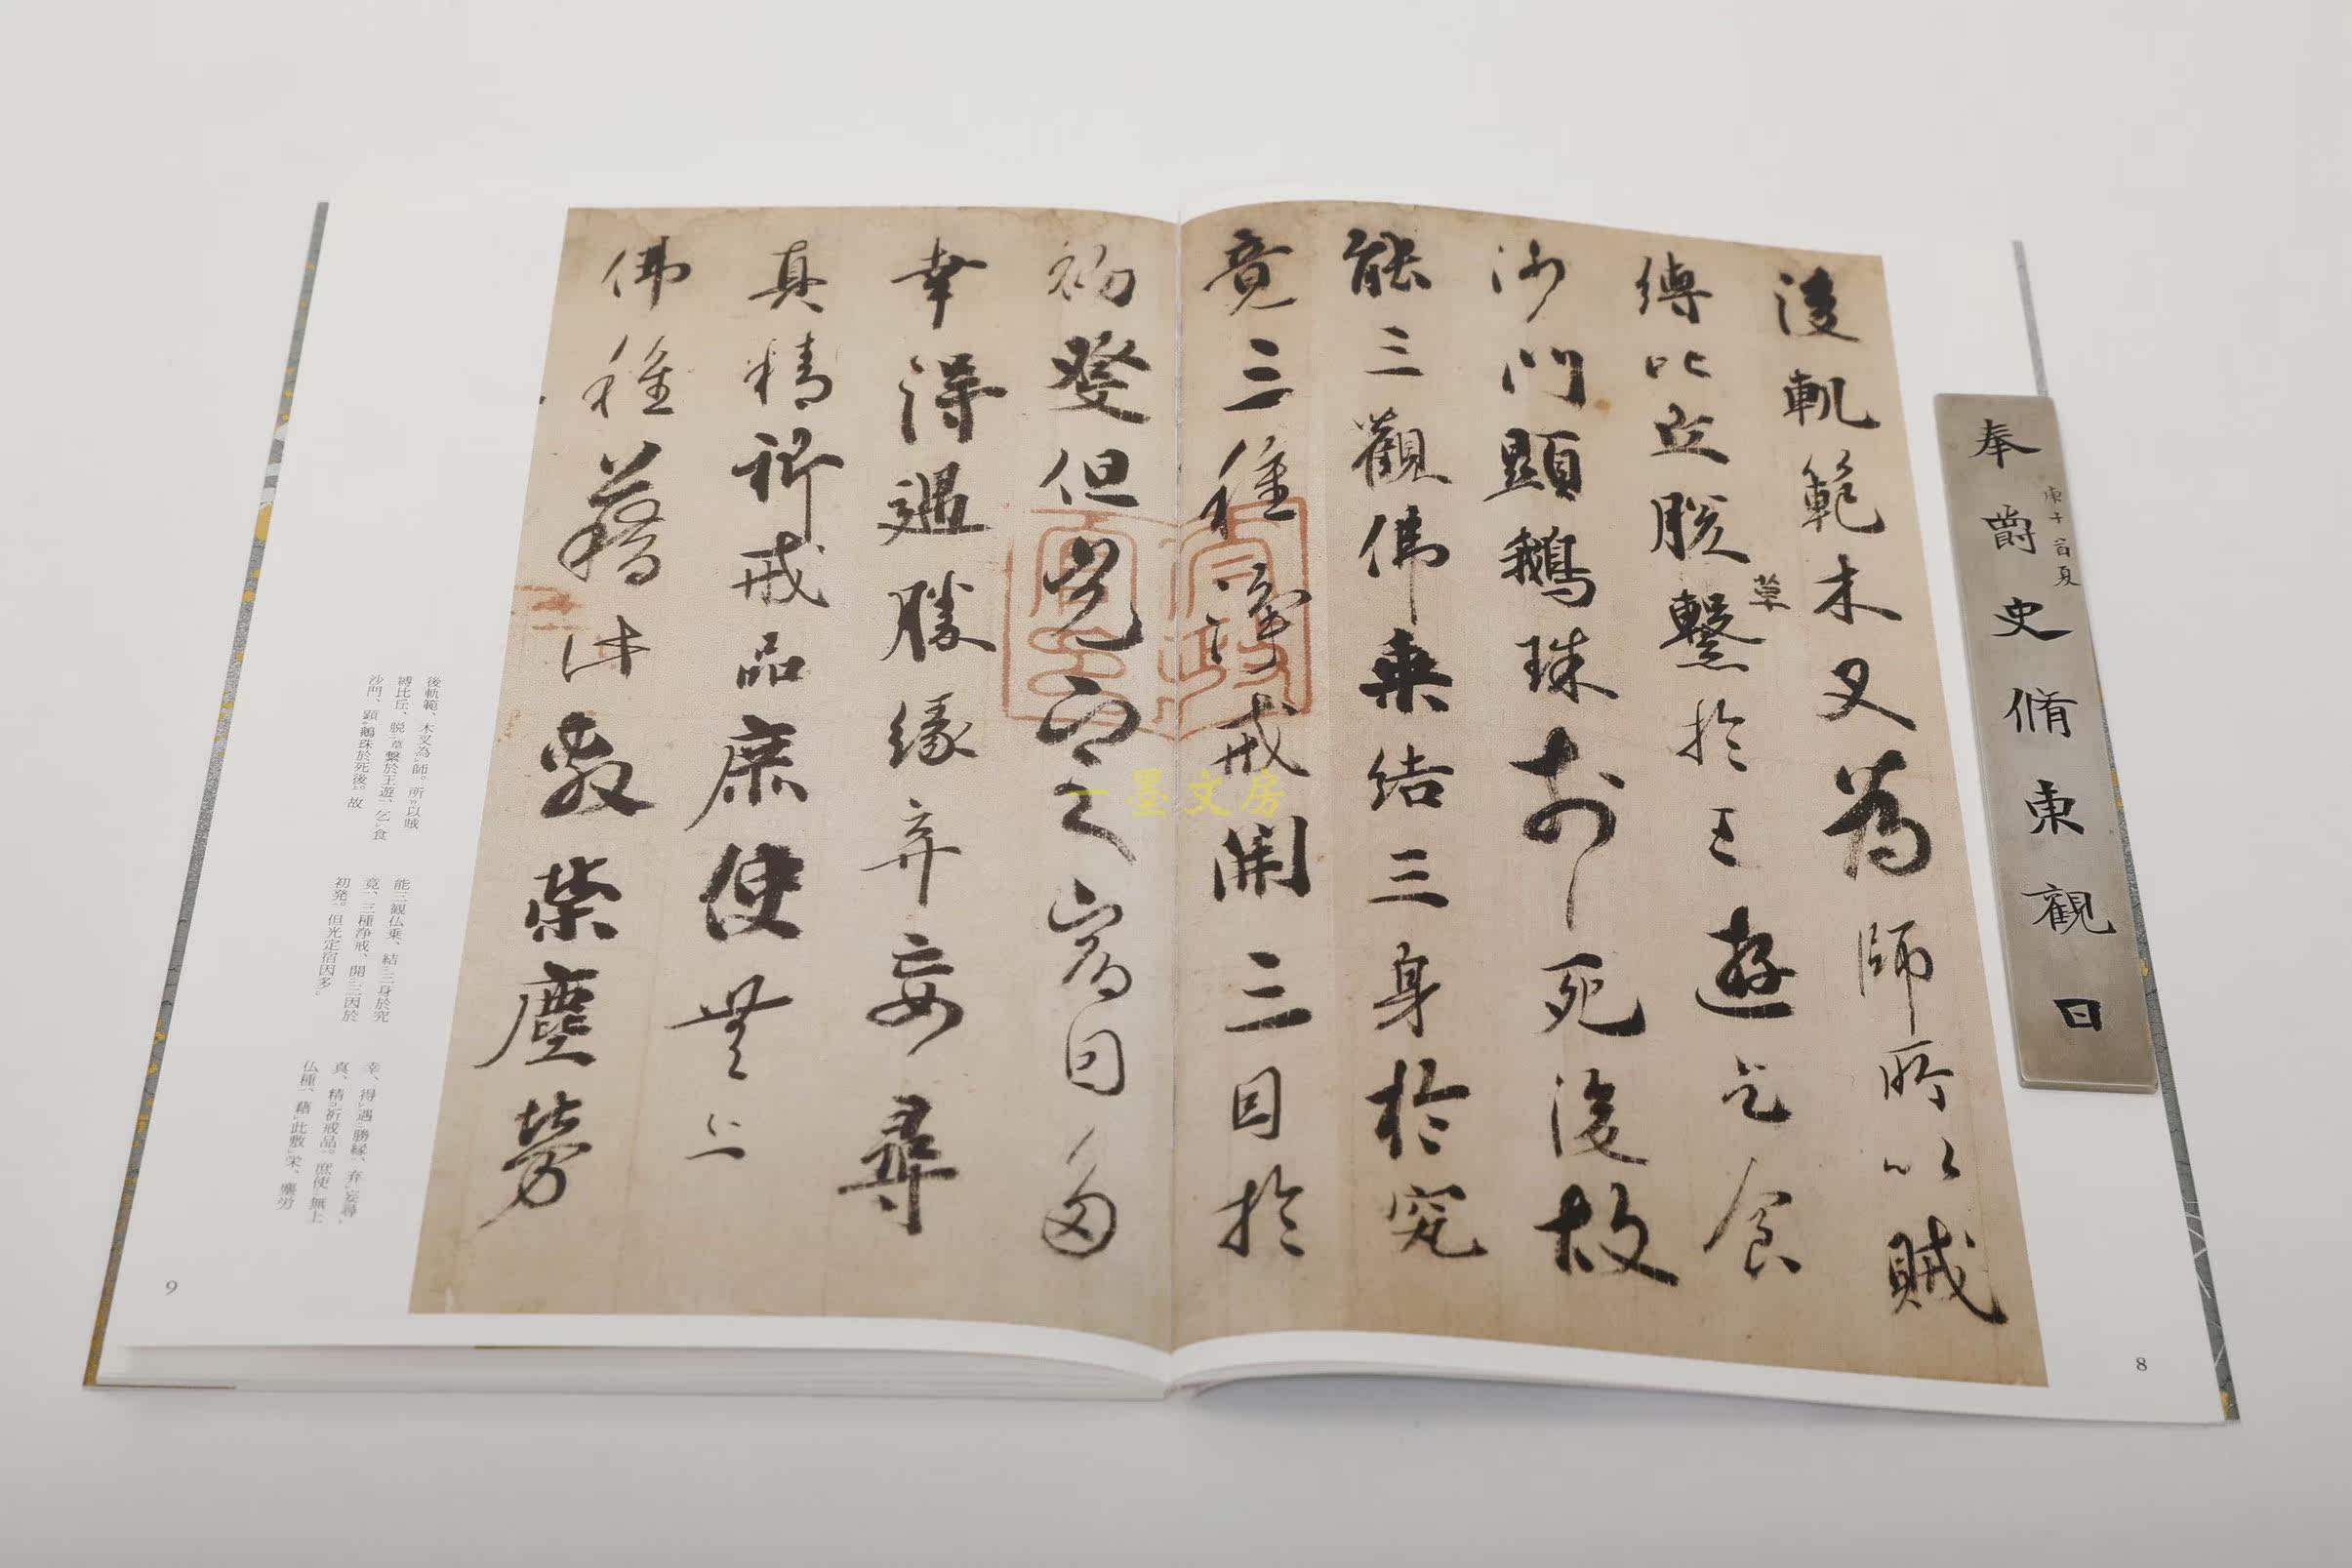 奉爵史脩東觀日
庚午首夏
後軌範木叉為師所以賊
縛比丘脫繫於王遊乞食
草
沙門顕鵝珠於死後故
能三觀佛乗結三身於究
竟三種淨戒開三因於
初發但光定宿因多
幸得遇勝緣弃妄尋
真精祈戒品庶使無上
佛種藉此敷榮塵勞
一墨文房
後軌範、木叉為師。所以賊
縛比丘、脱草繋於王遊、乞食
沙門、顕鵝珠於死後。故
能三観仏乗、結三身於究
竟、三種浄戒、開三因於
初発。但光定宿因多。
幸、得遇勝縁、弃妄尋
真、精祈戒品。庶使無上
仏種、藉此敷栄、塵労
9
8